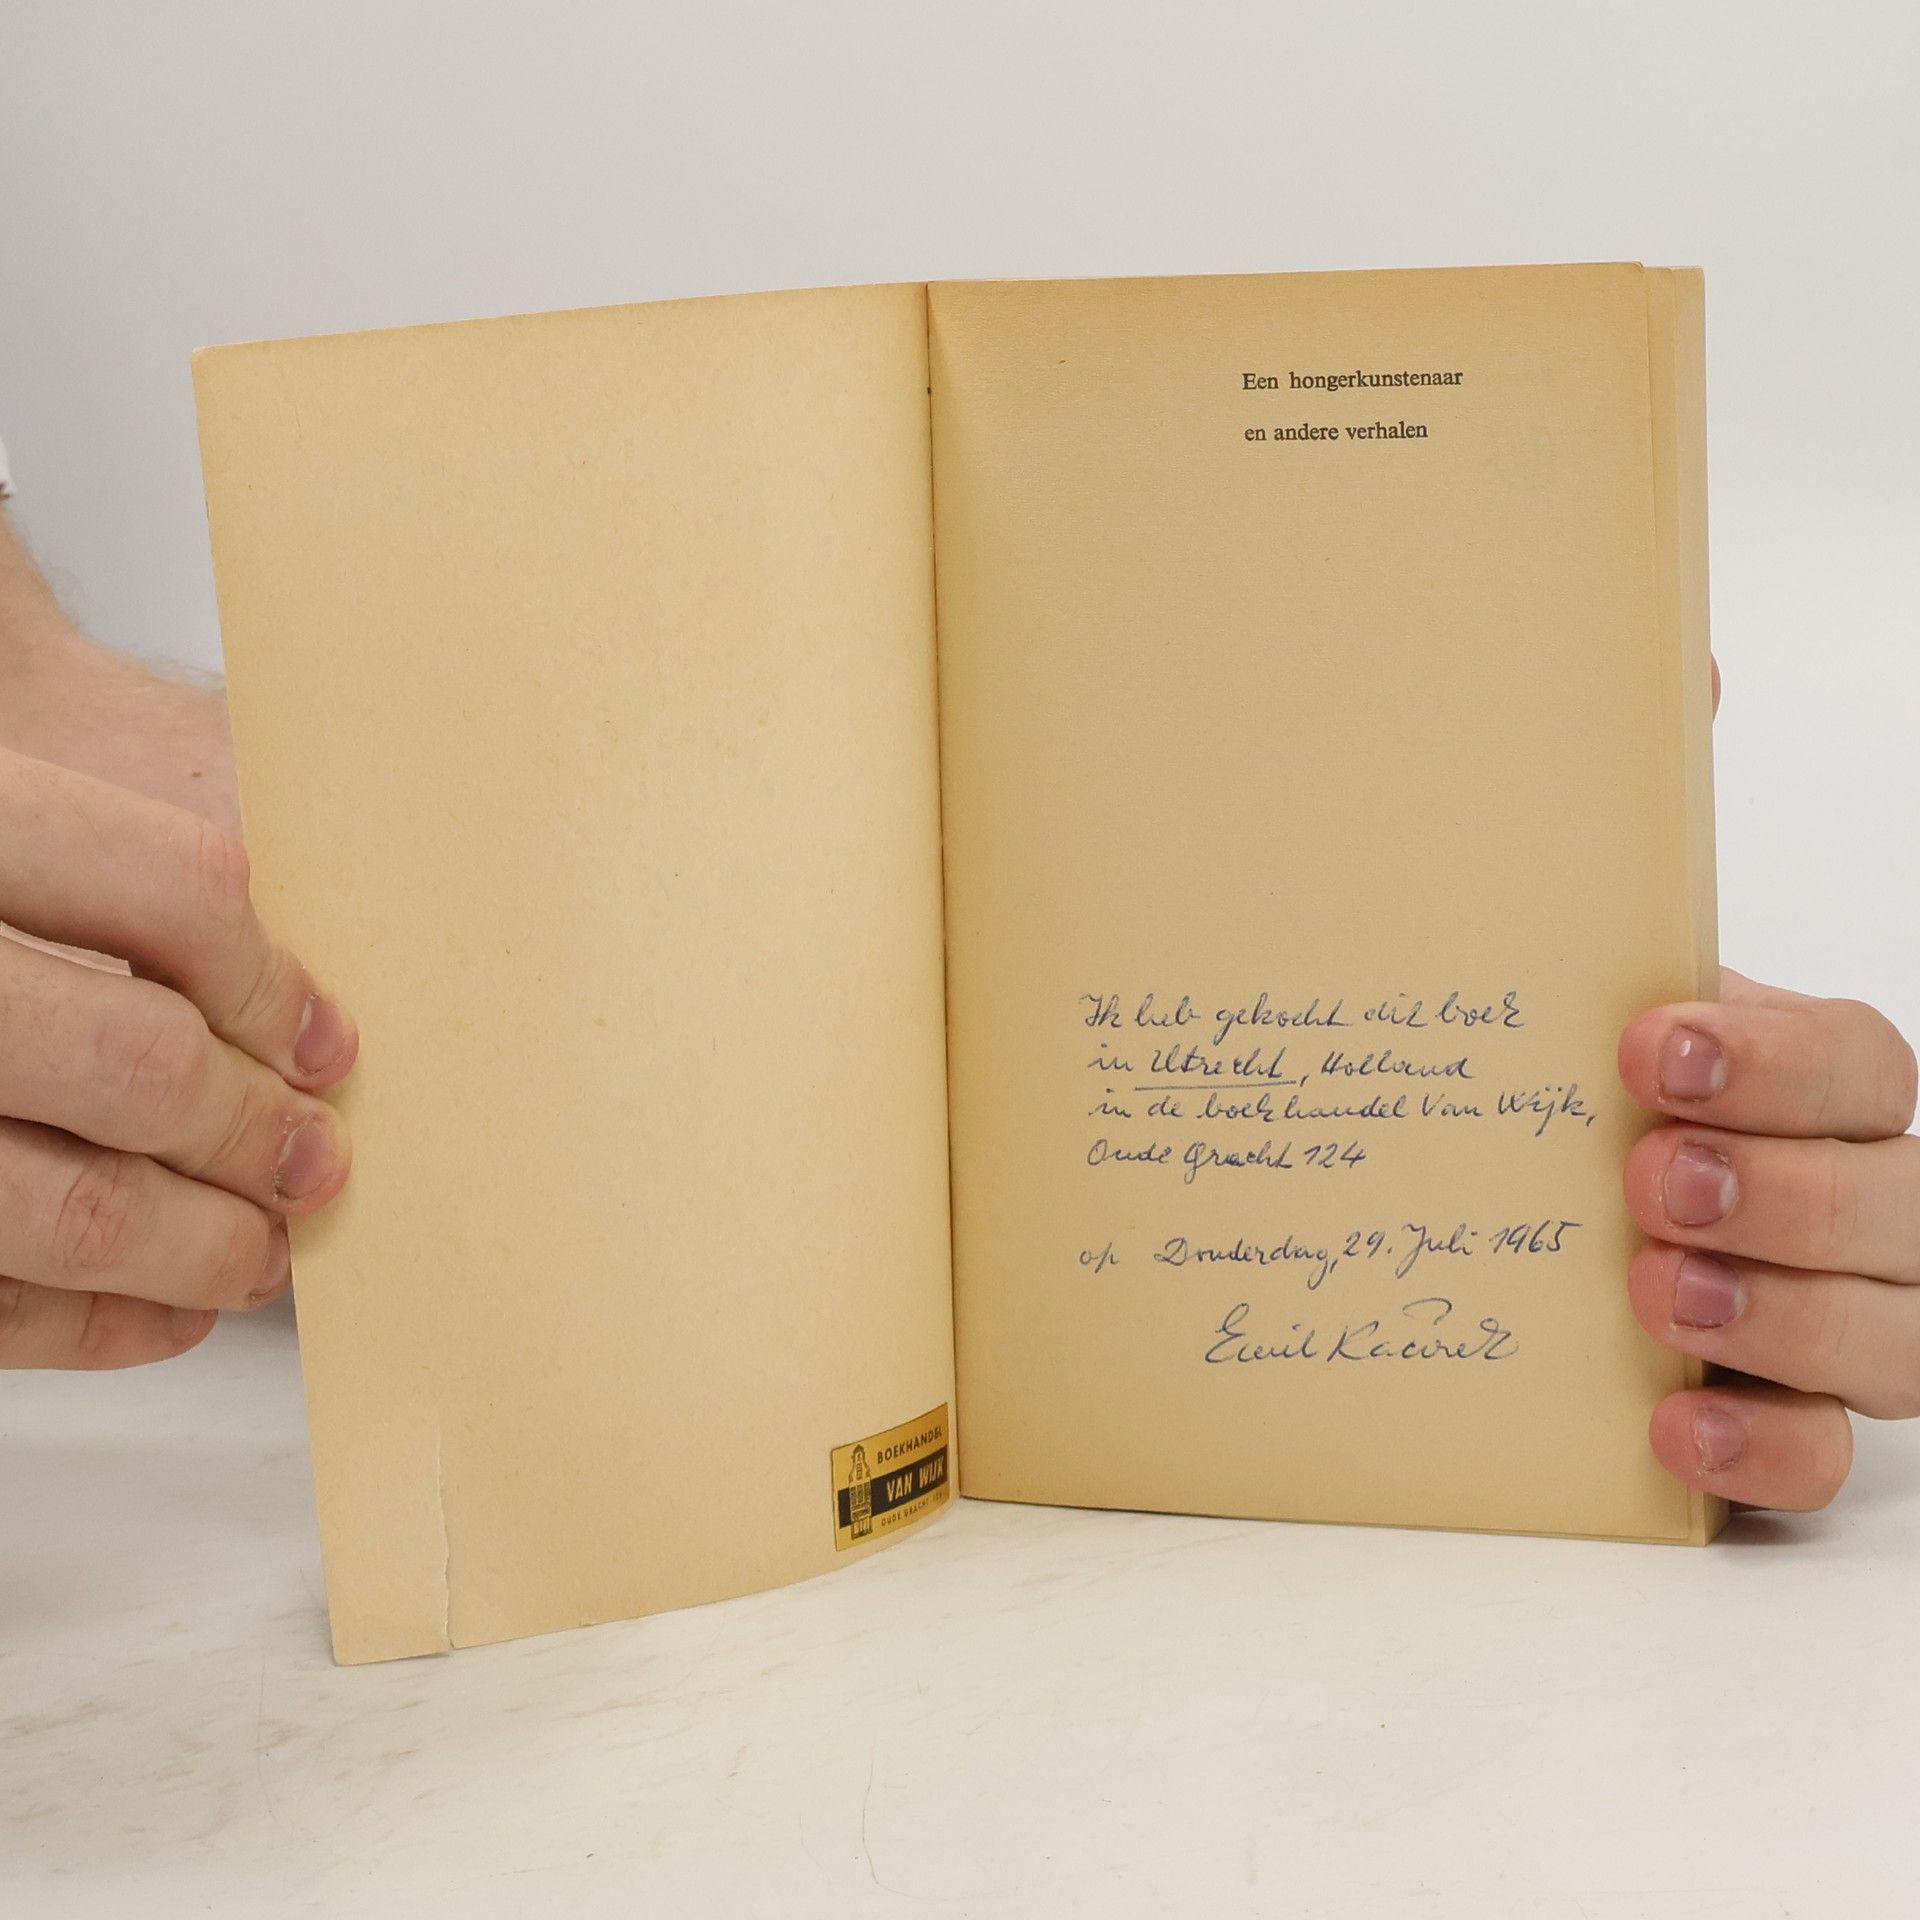 Een hongerkunstenaar
en andere verhalen
Ik heb gekocht dit boek
in Utrecht, Holland
in de boekhandel Van Wijk,
Oude Gracht 124
op Donderdag, 29. Juli 1965
Emil
BOEKHANDEL
VAN WIJK
OUDE GRACHT